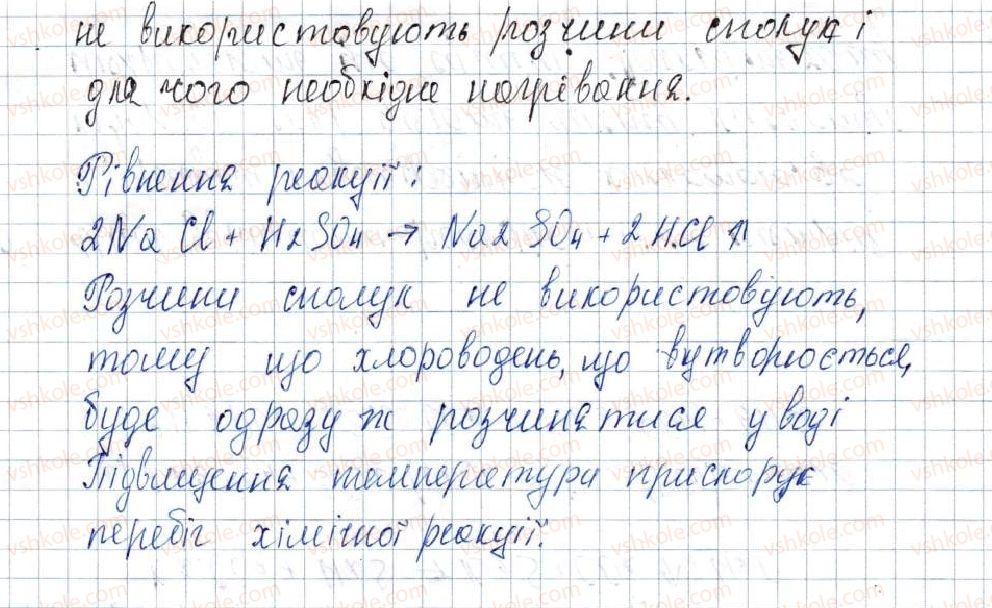 не використовують розчини сполук і
для чого необхідне нагрівання.
Рівняння реакції:
2NaCl + H2SO4 → Na2SO4 + 2HCl ↑
Розчини сполук не використовують,
тому що хлороводень, що вутворюється,
буде одразу ж розчинятися у воді
Підвищення температури прискорує
перебіг хімічної реакції.